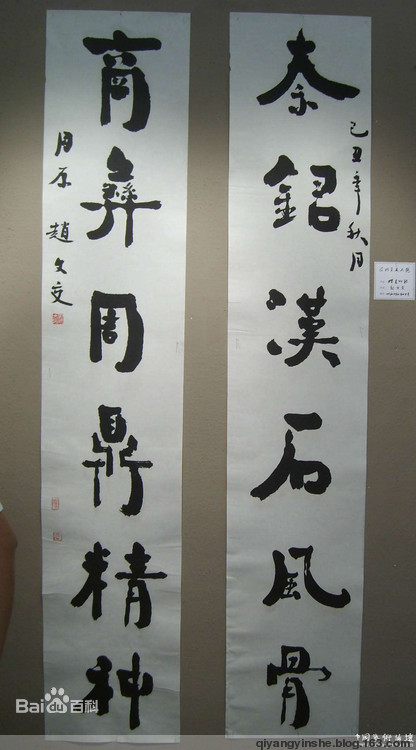 秦銘漢石風骨
己丑年秋月
商彝周鼎精神
周原 趙文
Bai百科
qiyangyinshe.blog.163.com